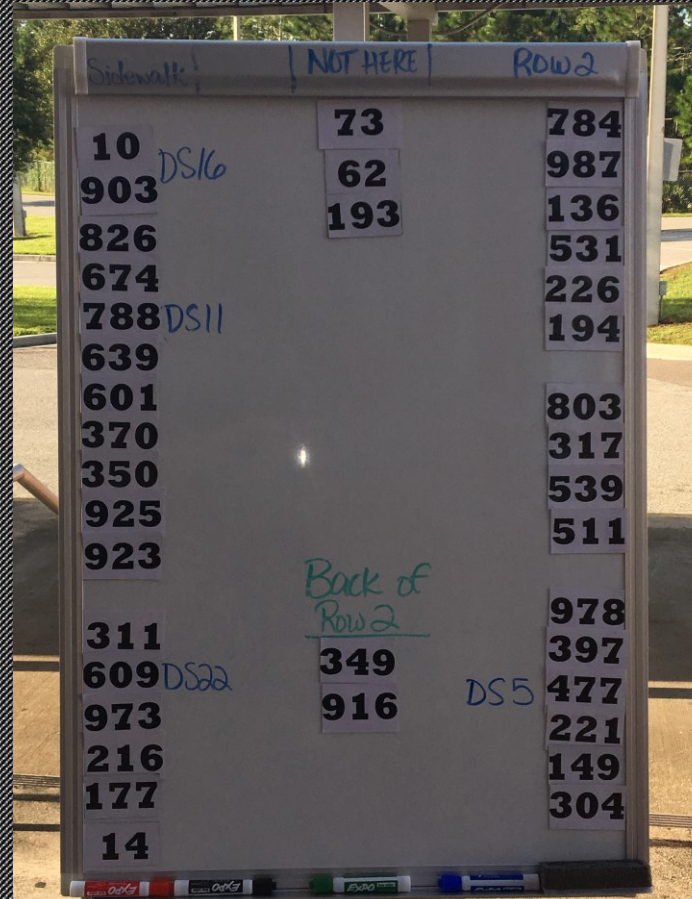 Sidewalk | | NOT HERE | ROW 2
10
903 DS16
826
674
788 DS11
639
601
370
350
925
923
311
609 DS22
973
216
177
14
73
62
193
Back of
Row 2
349
916
784
987
136
531
226
194
803
317
539
511
978
397
DS5 477
221
149
304
EXPO
EXPO
EXPO